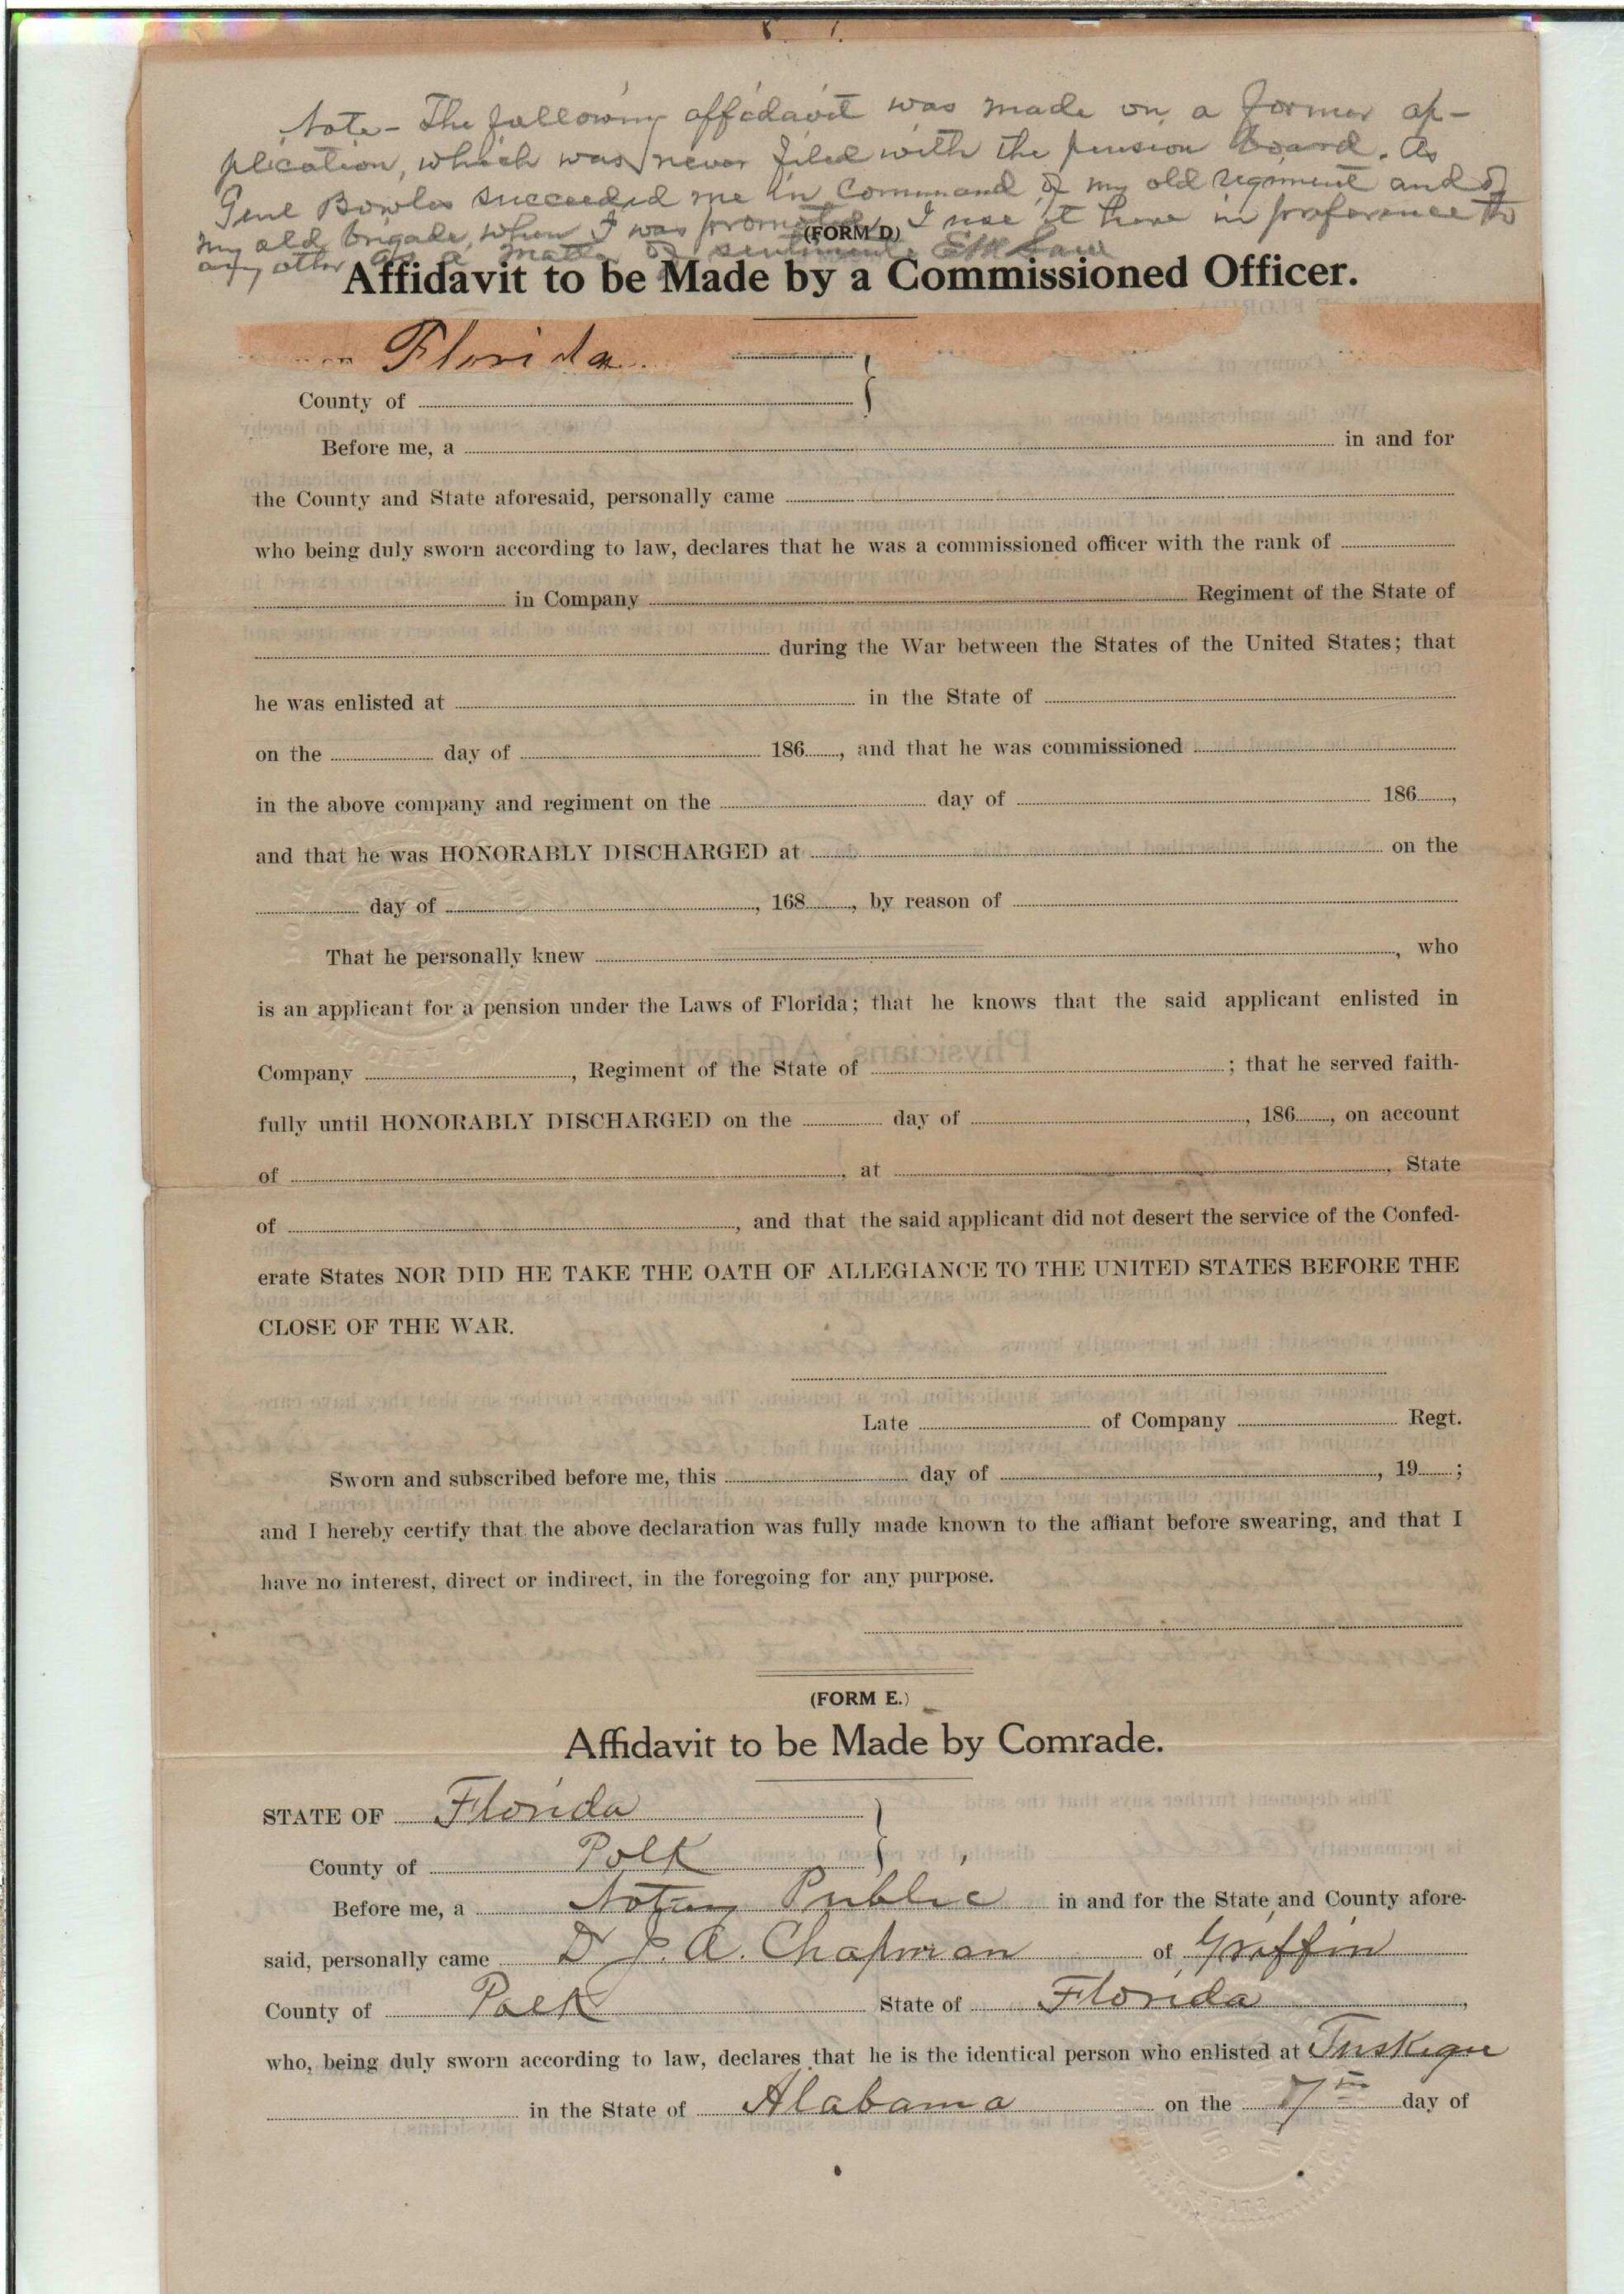 Note - The following affidavit was made on a former ap-
plication, which was never filed with the pension board. As
Genl Bowles succeeded me in command of my old regiment and of
my old brigade, when I was promoted, I use it here in preference to
any other as a matter of sentiment. E M Law
(FORM D)
Affidavit to be Made by a Commissioned Officer.
Florida
County of
Before me, a in and for
the County and State aforesaid, personally came
who being duly sworn according to law, declares that he was a commissioned officer with the rank of
in Company Regiment of the State of
during the War between the States of the United States; that
he was enlisted at in the State of
on the day of 186 , and that he was commissioned
in the above company and regiment on the day of 186 ,
and that he was HONORABLY DISCHARGED at on the
day of , 168 , by reason of
That he personally knew , who
is an applicant for a pension under the Laws of Florida; that he knows that the said applicant enlisted in
Company , Regiment of the State of ; that he served faith-
fully until HONORABLY DISCHARGED on the day of , 186 , on account
of , at , State
of , and that the said applicant did not desert the service of the Confed-
erate States NOR DID HE TAKE THE OATH OF ALLEGIANCE TO THE UNITED STATES BEFORE THE
CLOSE OF THE WAR.
Late of Company Regt.
Sworn and subscribed before me, this day of , 19 ;
and I hereby certify that the above declaration was fully made known to the affiant before swearing, and that I
have no interest, direct or indirect, in the foregoing for any purpose.
(FORM E.)
Affidavit to be Made by Comrade.
STATE OF Florida
County of Polk
Before me, a Notary Public in and for the State and County afore-
said, personally came D J. A. Chapman of Griffin
County of Polk State of Florida ,
who, being duly sworn according to law, declares that he is the identical person who enlisted at Tuskegee
in the State of Alabama on the day of